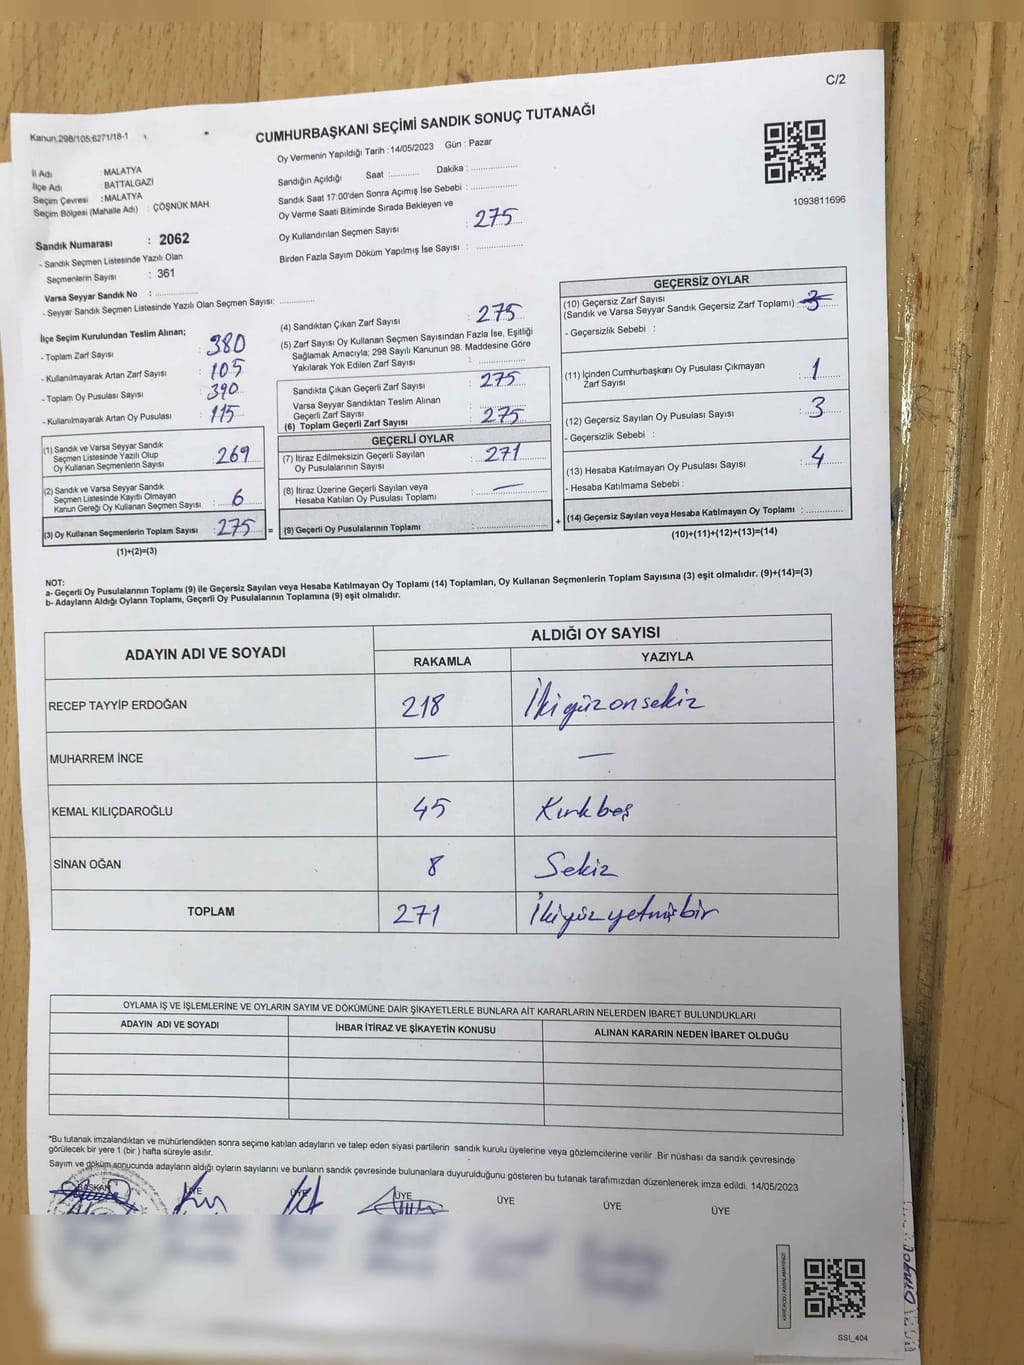 C/2
Kanun:298/105;6271/18-1
CUMHURBAŞKANI SEÇİMİ SANDIK SONUÇ TUTANAĞI
Oy Vermenin Yapıldığı Tarih : 14/05/2023 Gün : Pazar
İl Adı MALATYA
İlçe Adı : BATTALGAZİ
Seçim Çevresi : MALATYA
Seçim Bölgesi (Mahalle Adı) : ÇÖŞNÜK MAH.
Sandık Numarası : 2062
- Sandık Seçmen Listesinde Yazılı Olan
Seçmenlerin Sayısı : 361
Varsa Seyyar Sandık No :
- Seyyar Sandık Seçmen Listesinde Yazılı Olan Seçmen Sayısı:
Sandığın Açıldığı Saat : Dakika :
Sandık Saat 17:00'den Sonra Açımış İse Sebebi :
Oy Verme Saati Bitiminde Sırada Bekleyen ve
Oy Kullandırılan Seçmen Sayısı : 275
Birden Fazla Sayım Döküm Yapılmış İse Sayısı :
1093811696
İlçe Seçim Kurulundan Teslim Alınan;
- Toplam Zarf Sayısı : 380
- Kullanılmayarak Artan Zarf Sayısı : 105
- Toplam Oy Pusulası Sayısı : 390
- Kullanılmayarak Artan Oy Pusulası : 115
(1) Sandık ve Varsa Seyyar Sandık
Seçmen Listesinde Yazılı Olup
Oy Kullanan Seçmenlerin Sayısı : 269
(2) Sandık ve Varsa Seyyar Sandık
Seçmen Listesinde Kayıtlı Olmayan
Kanun Gereği Oy Kullanan Seçmen Sayısı : 6
(3) Oy Kullanan Seçmenlerin Toplam Sayısı : 275 =
(1)+(2)=(3)
(4) Sandıktan Çıkan Zarf Sayısı : 275
(5) Zarf Sayısı Oy Kullanan Seçmen Sayısından Fazla İse, Eşitliği
Sağlamak Amacıyla; 298 Sayılı Kanunun 98. Maddesine Göre
Yakılarak Yok Edilen Zarf Sayısı :
Sandıkta Çıkan Geçerli Zarf Sayısı : 275
Varsa Seyyar Sandıktan Teslim Alınan
Geçerli Zarf Sayısı :
(6) Toplam Geçerli Zarf Sayısı : 275
GEÇERLİ OYLAR
(7) İtiraz Edilmeksizin Geçerli Sayılan
Oy Pusulalarının Sayısı : 271
(8) İtiraz Üzerine Geçerli Sayılan veya
Hesaba Katılan Oy Pusulası Toplamı : —
(9) Geçerli Oy Pusulalarının Toplamı : +
GEÇERSİZ OYLAR
(10) Geçersiz Zarf Sayısı
(Sandık ve Varsa Seyyar Sandık Geçersiz Zarf Toplamı) : 3
- Geçersizlik Sebebi :
(11) İçinden Cumhurbaşkanı Oy Pusulası Çıkmayan
Zarf Sayısı : 1
(12) Geçersiz Sayılan Oy Pusulası Sayısı : 3
- Geçersizlik Sebebi :
(13) Hesaba Katılmayan Oy Pusulası Sayısı : 4
- Hesaba Katılmama Sebebi :
(14) Geçersiz Sayılan veya Hesaba Katılmayan Oy Toplamı :
(10)+(11)+(12)+(13)=(14)
NOT:
a- Geçerli Oy Pusulalarının Toplamı (9) ile Geçersiz Sayılan veya Hesaba Katılmayan Oy Toplamı (14) Toplamları, Oy Kullanan Seçmenlerin Toplam Sayısına (3) eşit olmalıdır. (9)+(14)=(3)
b- Adayların Aldığı Oyların Toplamı, Geçerli Oy Pusulalarının Toplamına (9) eşit olmalıdır.
ADAYIN ADI VE SOYADI ALDIĞI OY SAYISI
RAKAMLA YAZIYLA
RECEP TAYYİP ERDOĞAN 218 İkiyüzonsekiz
MUHARREM İNCE — —
KEMAL KILIÇDAROĞLU 45 Kırkbeş
SİNAN OĞAN 8 Sekiz
TOPLAM 271 İkiyüzyetmişbir
OYLAMA İŞ VE İŞLEMLERİNE VE OYLARIN SAYIM VE DÖKÜMÜNE DAİR ŞİKAYETLERLE BUNLARA AİT KARARLARIN NELERDEN İBARET BULUNDUKLARI
ADAYIN ADI VE SOYADI İHBAR İTİRAZ VE ŞİKAYETİN KONUSU ALINAN KARARIN NEDEN İBARET OLDUĞU
*Bu tutanak imzalandıktan ve mühürlendikten sonra seçime katılan adayların ve talep eden siyasi partilerin sandık kurulu üyelerine veya gözlemcilerine verilir .Bir nüshası da sandık çevresinde
görülecek bir yere 1 (bir ) hafta süreyle asılır.
Sayım ve döküm sonucunda adayların aldığı oyların sayılarını ve bunların sandık çevresinde bulunanlara duyurulduğunu gösteren bu tutanak tarafımızdan düzenlenerek imza edildi. 14/05/2023
BAŞKAN ÜYE ÜYE ÜYE ÜYE ÜYE ÜYE
SSI_404